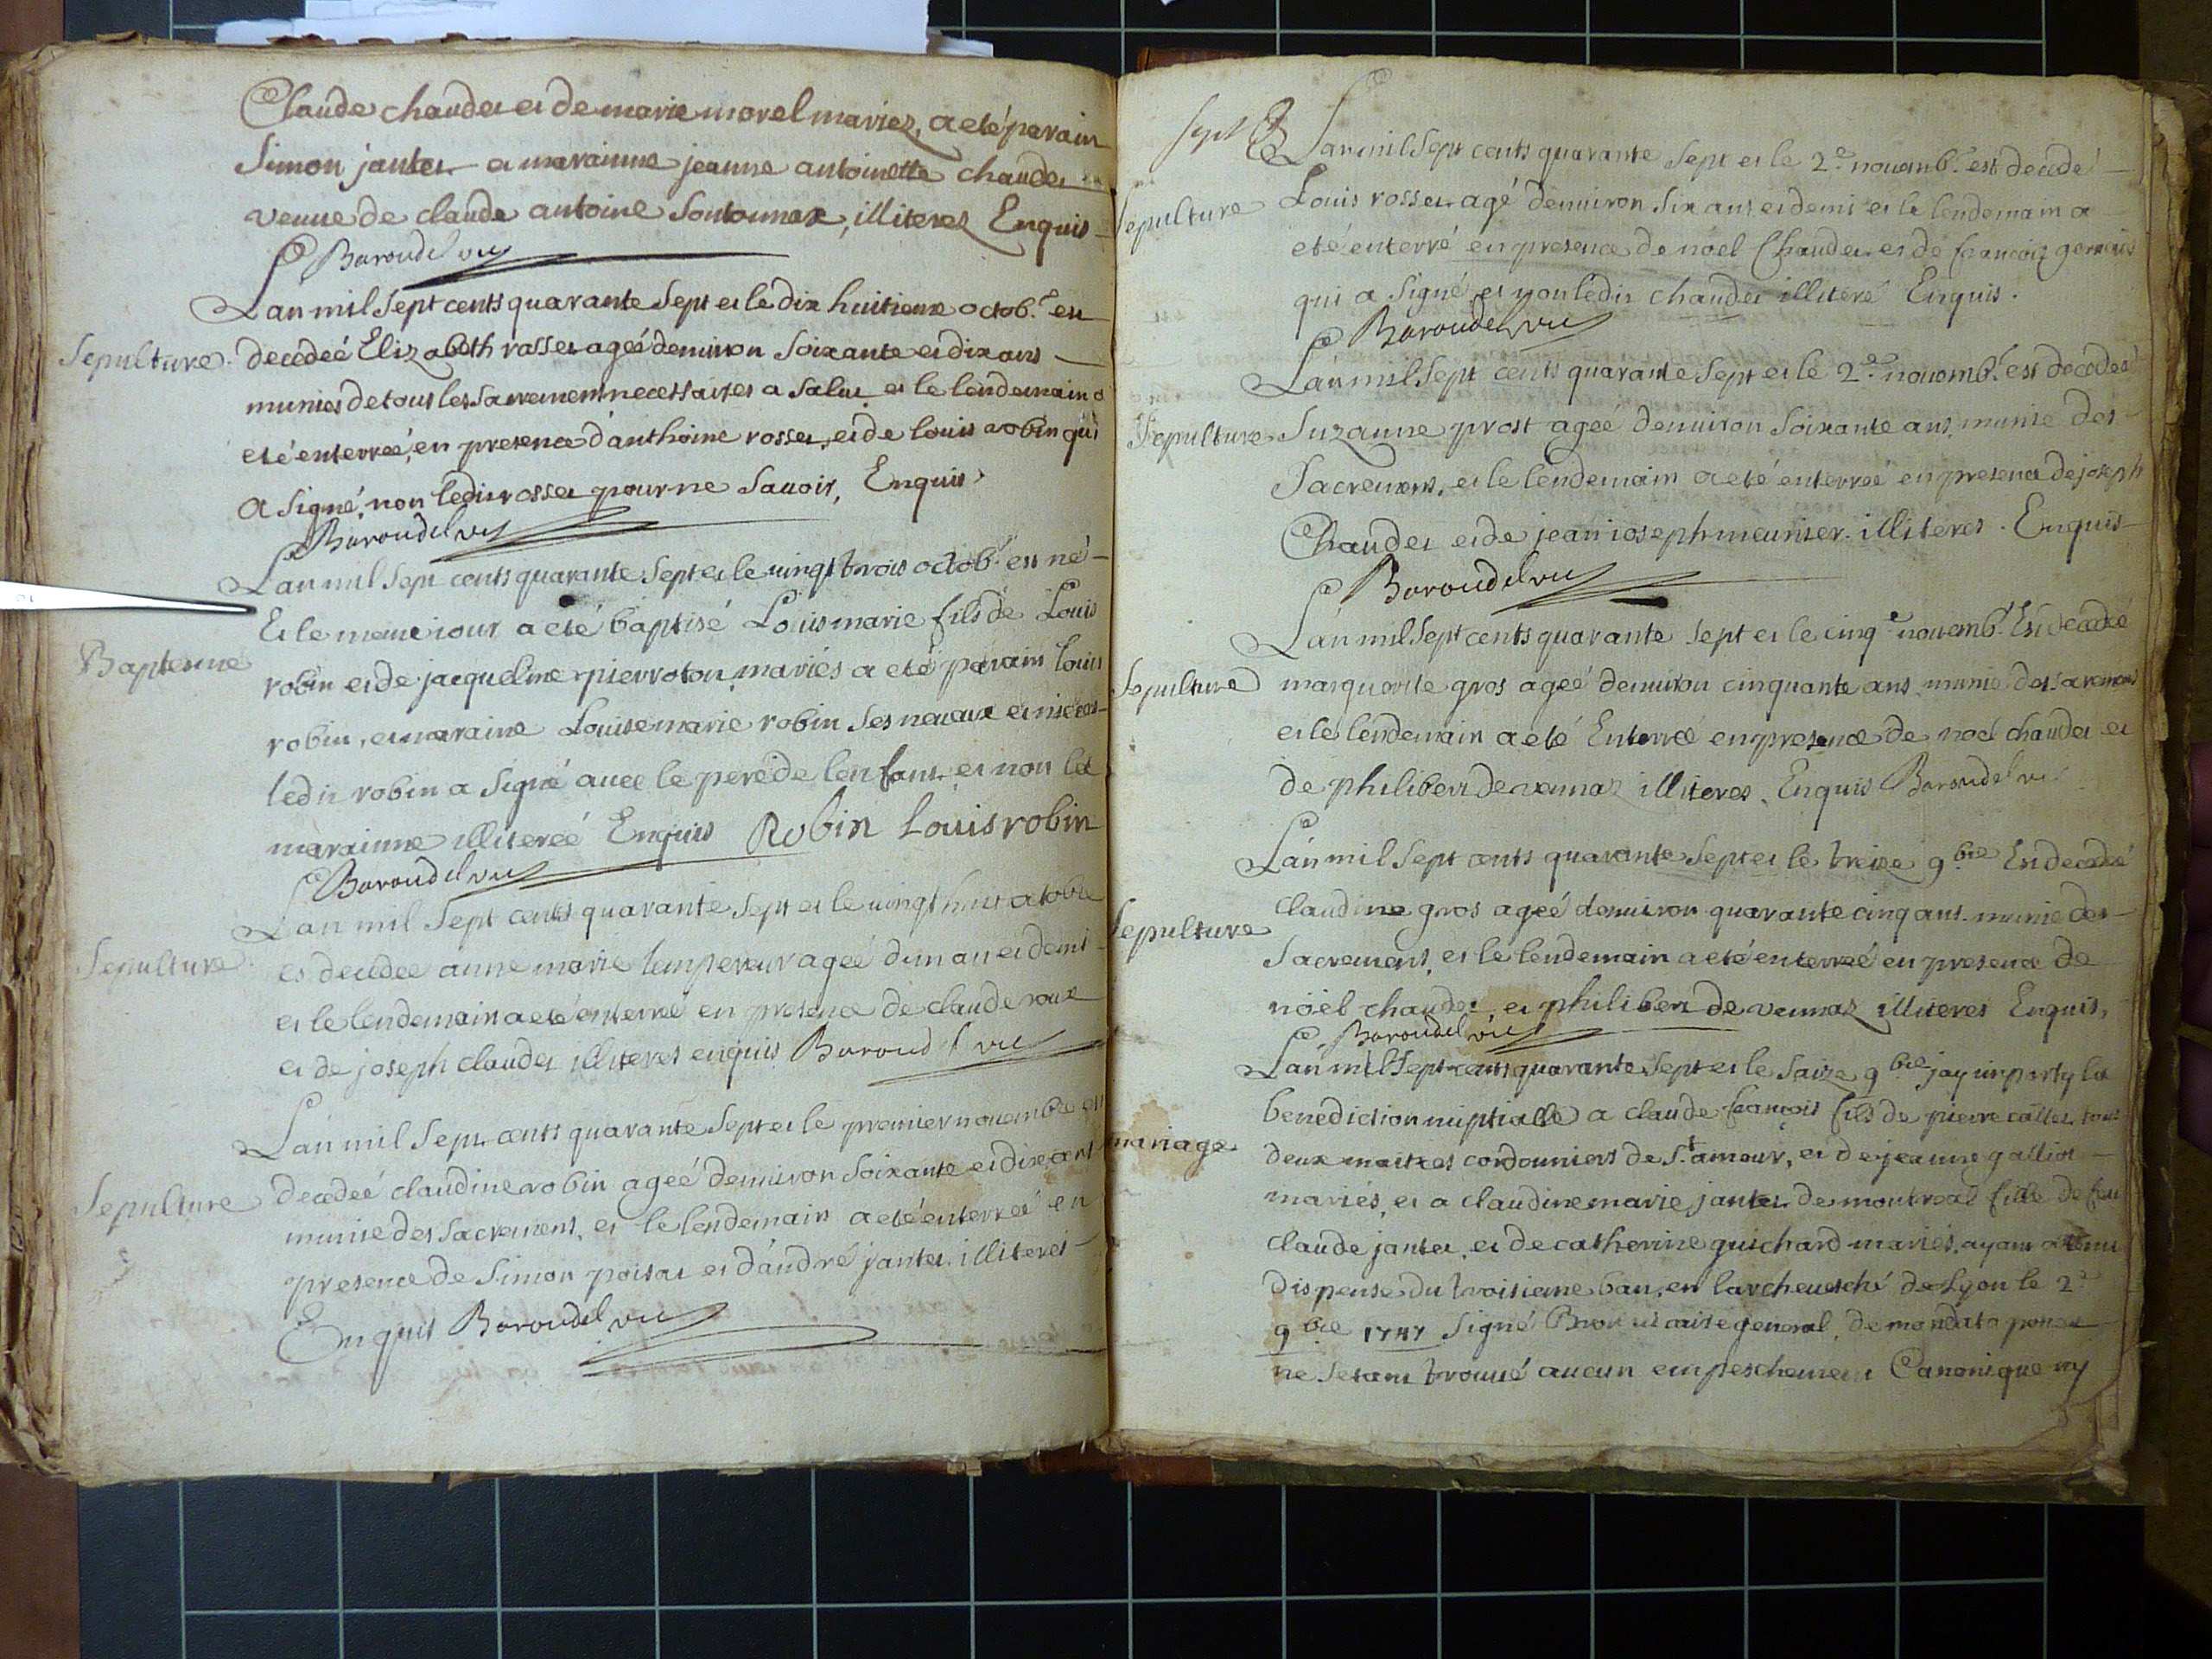 Claude chaudet et de marie morel mariez, a eté parain
Simon jantet et marainne jeanne antoinette chaudet
veuve de claude antoine Sontonnax, illiterez Enquis
Baroudel vic
Lan mil Sept cents quarante Sept et le dix huitieme octob.e est
Sepulture. decedeé Elizabeth rasset ageé denuiron Soixante et dix ans
munies de tous les sacremens necessaires a Salut et le lendemain a
eté enterreé, en presence d'anthoine rosset, et de louis robin qui
a Signé, non ledit rosset pour ne Sauoir, Enquis
Baroudel vic
Lan mil Sept cents quarante Sept et le uingt trois octob.e est né
Et le meme iour a eté baptisé Louis marie fils de Louis
Baptesme robin et de jacqueline pierroton mariés a eté parain louis
robin, et maraine Louise marie robin Ses neueux et nieces
ledit robin a Signé auec le pere de lenfant et non la
marainne illitereé Enquis Robin Louis robin
Baroudel vic
Lan mil Sept cents quarante Sept et le uingt huit octobre
Sepulture. es decedee anne marie lempereur ageé dun an et demi
et le lendemain a eté enterreé en presence de claude roux
et de joseph claudet illiteres enquis Baroudel vic
Lan mil Sept cents quarante Sept et le premier nouembre est
Sepulture decedeé claudine robin ageé denuiron Soixante et dix ans
munie des Sacremens, et le lendemain a eté enterreé en
presence de Simon poisat et d'andré jantet illiteres
Enquis Baroudel vic
Lan mil Sept cents quarante Sept et le 2.e nouemb.e est decedé
Sepulture Louis rosset agé denuiron Six ans et demi et le lendemain a
eté enterré en presence de noel Chaudet et de francois geruais
qui a Signé et non ledit chaudet illiteré Enquis.
Baroudel vic
Lan mil Sept cents quarante Sept et le 2.e nouemb.e est decedeé
Sepulture Suzanne prost ageé denuiron Soixante ans munie des
Sacremens, et le lendemain a eté enterreé en presence de joseph
Chaudet et de jean ioseph meunier. illiteres. Enquis
Baroudel vic
Lan mil Sept cents quarante Sept et le cinq.e nouemb.e Est decedeé
Sepulture marguerite gros ageé denuiron cinquante ans munie des sacremens
et le lendemain a eté Enterreé en presence de noel chaudet et
de philibert de vannaz illiteres. Enquis Baroudel vic
Lan mil Sept cents quarante Sept et le treize 9.bre Est decedeé
Sepulture claudine gros ageé denuiron quarante cinq ans munie des
Sacremens, et le lendemain a eté enterreé en presence de
noël chaudet, et philibert de vannaz illiteres Enquis,
Baroudel vic
Lan mil Sept cents quarante Sept et le Saize 9.bre jay imparty la
benediction nuptialle a claude françois fils de pierre cattet tous
mariage deux maitres cordonniers de S.t amour, et de jeanne galliot
mariés, et a claudine marie jantet de montreal fille de feu
claude jantet, et de catherine guichard mariés, ayant obtenu
dispense du troisieme ban, en larcheuesché de Lyon le 2.e
9.bre 1747 Signé Bron uicaire general, de mandato
ne setant trouué aucun empeschement Canonique ny